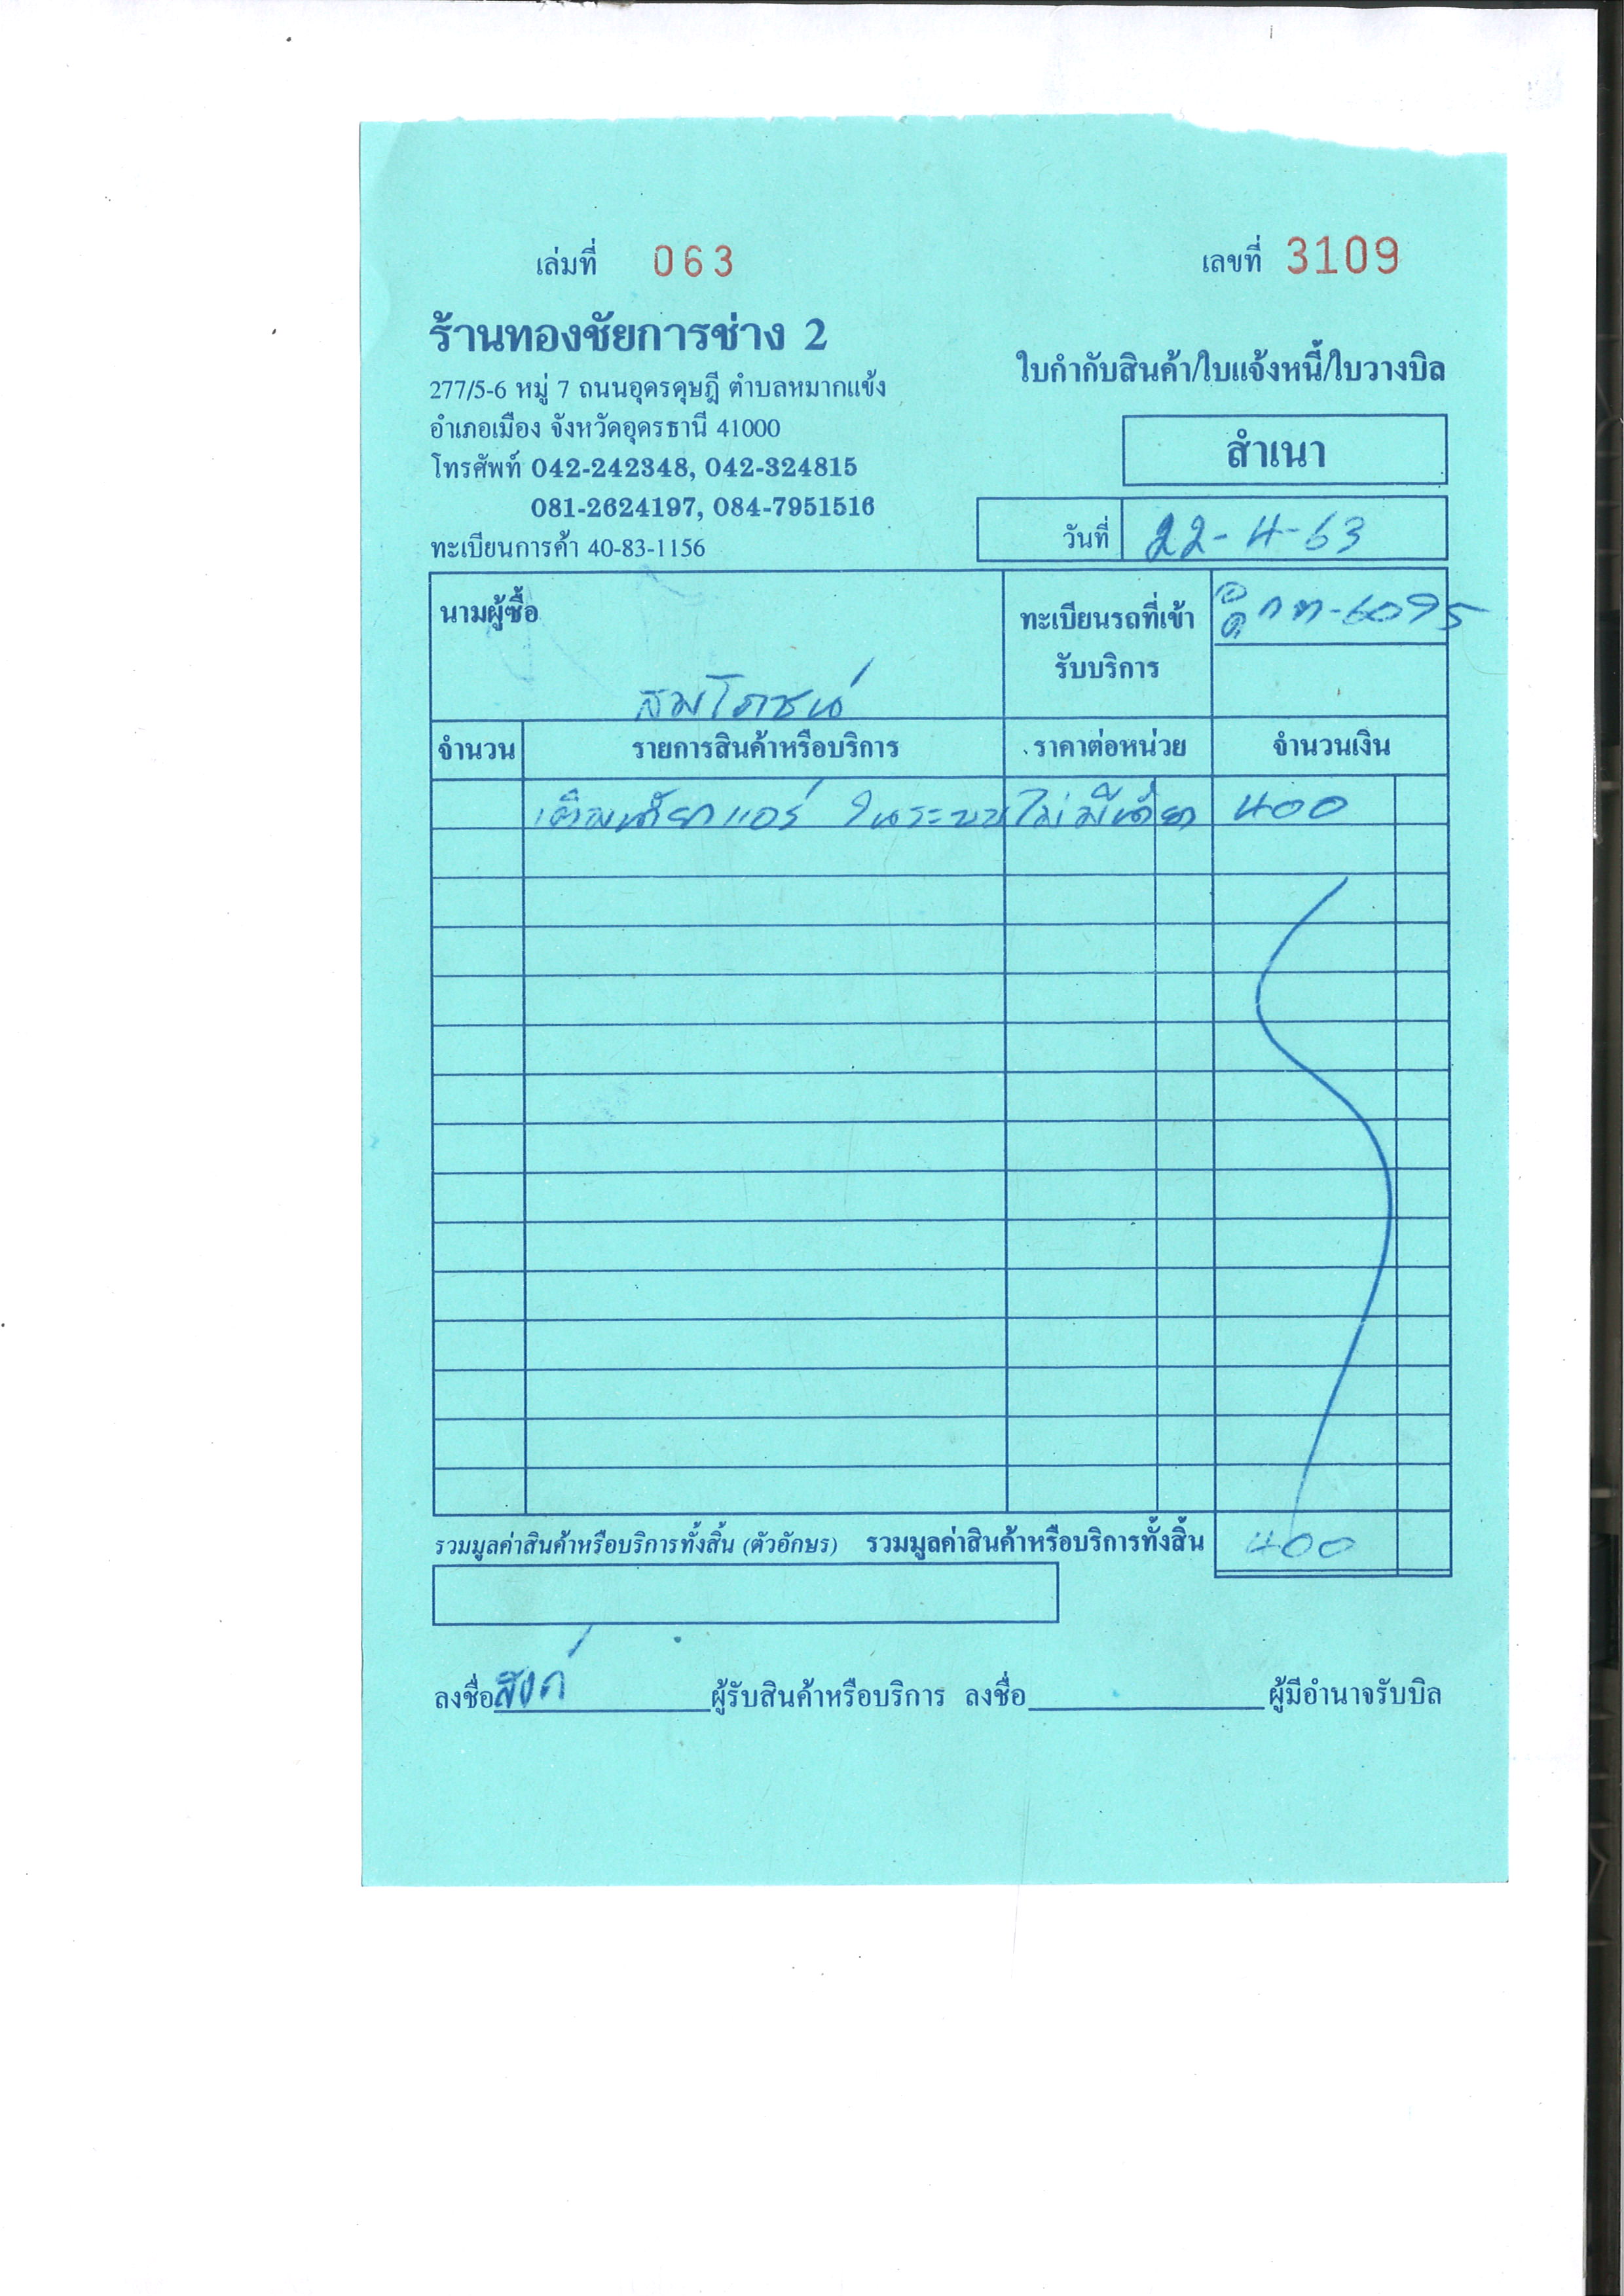 เล่มที่ 063
เลขที่ 3109
ร้านทองชัยการช่าง 2
277/5-6 หมู่ 7 ถนนอุดรดุษฎี ตำบลหมากแข้ง
อำเภอเมือง จังหวัดอุดรธานี 41000
โทรศัพท์ 042-242348, 042-324815
081-2624197, 084-7951516
ทะเบียนการค้า 40-83-1156
ใบกำกับสินค้า/ใบแจ้งหนี้/ใบวางบิล
สำเนา
วันที่ 22-4-63
นามผู้ซื้อ
สมโภชน์
ทะเบียนรถที่เข้า
รับบริการ
กต-6095
จำนวน รายการสินค้าหรือบริการ ราคาต่อหน่วย จำนวนเงิน
เติมน้ำยาแอร์ ในระบบไม่มีน้ำยา 400
รวมมูลค่าสินค้าหรือบริการทั้งสิ้น (ตัวอักษร) รวมมูลค่าสินค้าหรือบริการทั้งสิ้น 400
ลงชื่อ ผู้รับสินค้าหรือบริการ ลงชื่อ ผู้มีอำนาจรับบิล